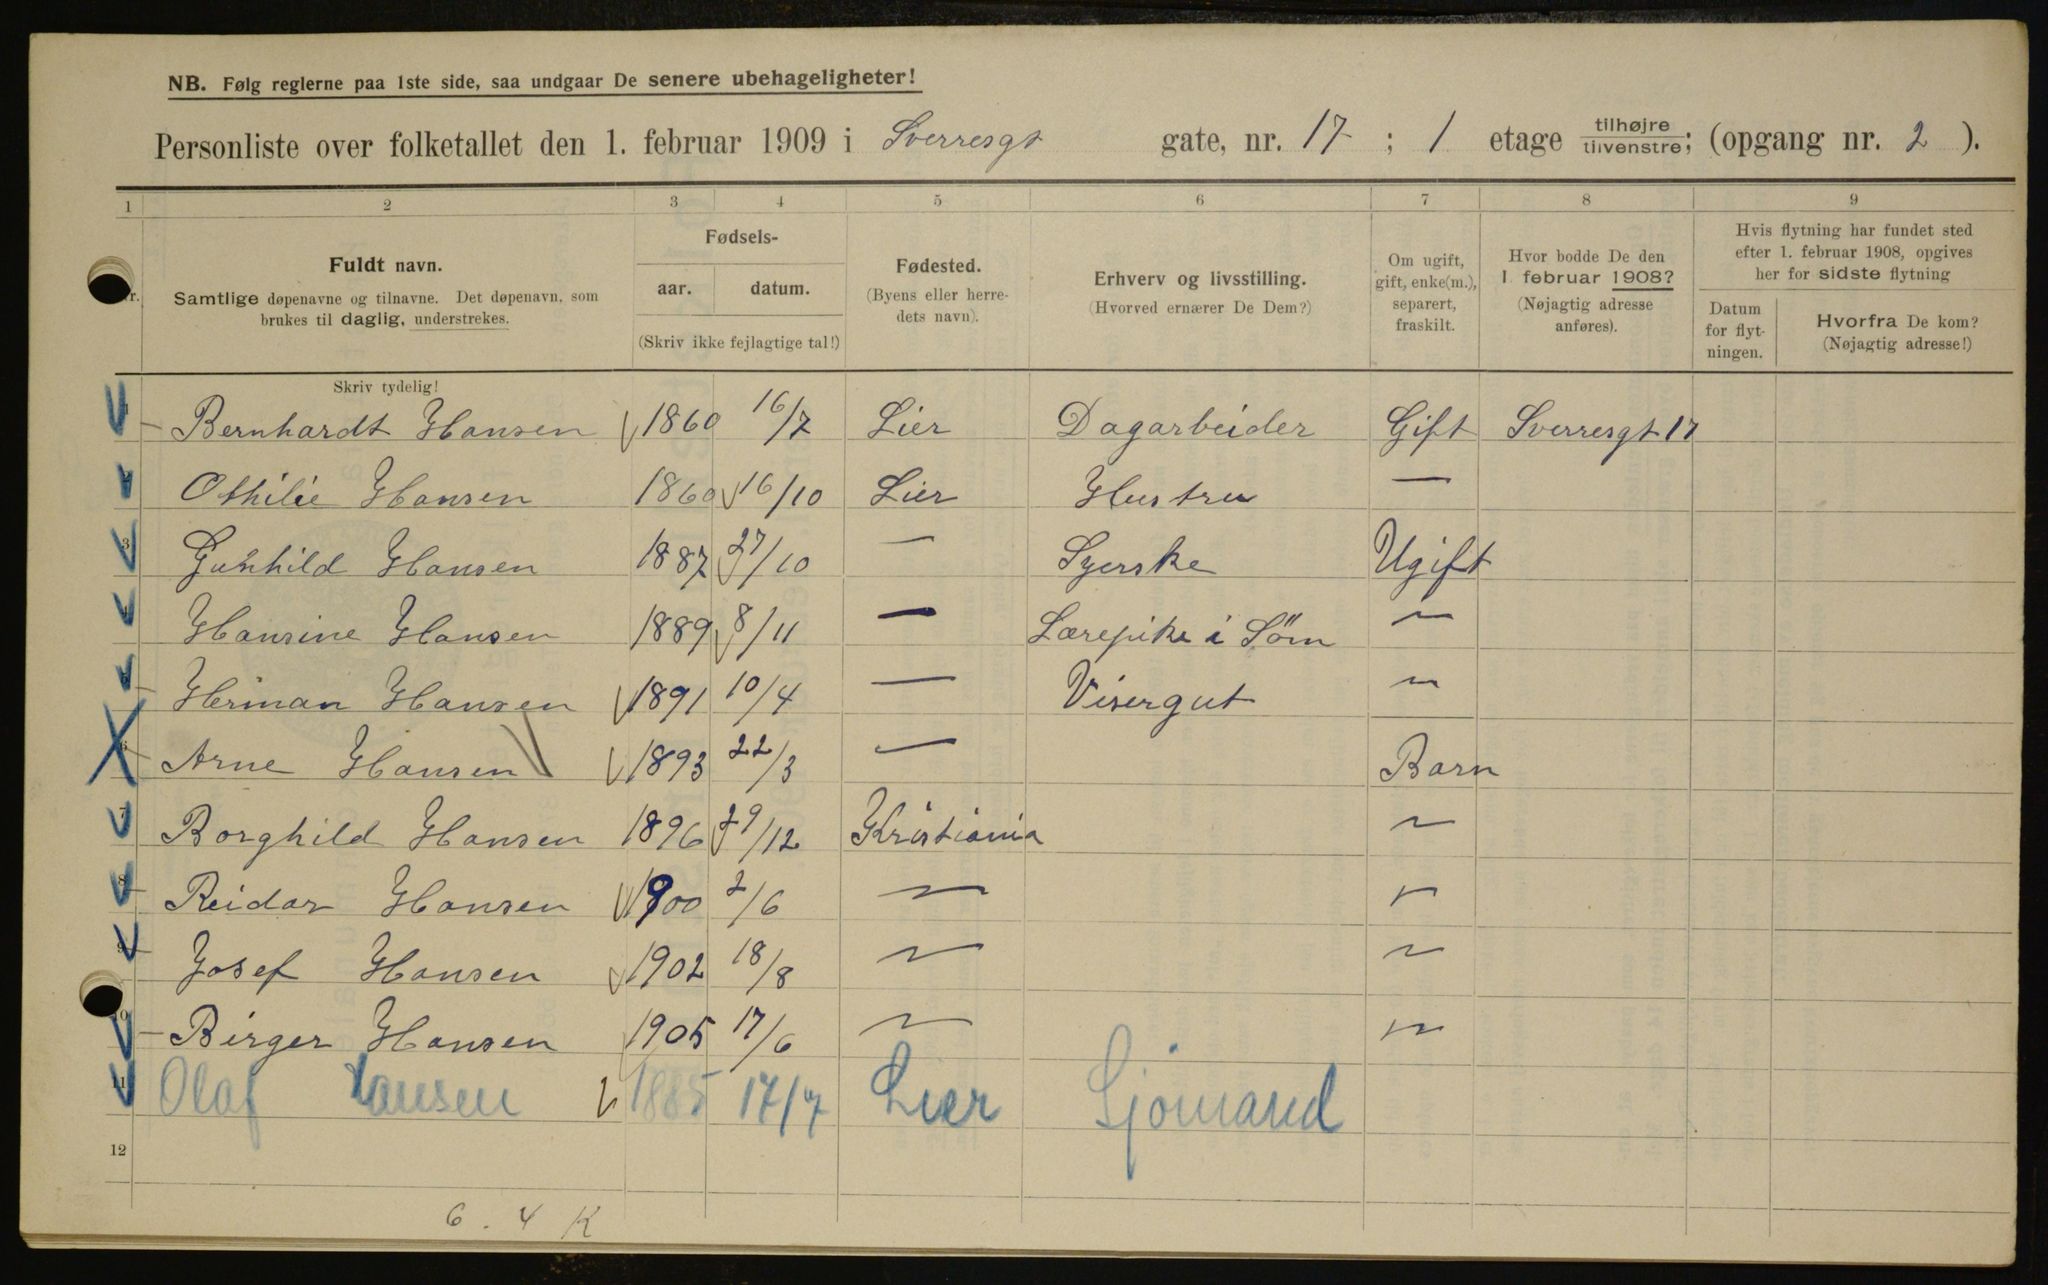 NB. Følg reglerne paa 1ste side, saa undgaar De senere ubehageligheter!
Personliste over folketallet den 1. februar 1909 i Sverresgt gate, nr. 17 ; 1 etage tilhøjre tilvenstre; (opgang nr. 2 ).
1 2 3 4 5 6 7 8 9
Nr.
Fuldt navn.
Samtlige døpenavne og tilnavne. Det døpenavn, som
brukes til daglig, understrekes.
Skriv tydelig!
Fødsels-
aar. datum.
(Skriv ikke fejlagtige tal!)
Fødested.
(Byens eller herre-
dets navn).
Erhverv og livsstilling.
(Hvorved ernærer De Dem?)
Om ugift,
gift, enke(m.),
separert,
fraskilt.
Hvor bodde De den
1 februar 1908?
(Nøjagtig adresse
anføres).
Hvis flytning har fundet sted
efter 1. februar 1908, opgives
her for sidste flytning
Datum
for flyt-
ningen.
Hvorfra De kom?
(Nøjagtig adresse!)
1 Bernhardt Hansen 1860 16/7 Lier Dagarbeider Gift Sverresgt 17
2 Othilie Hansen 1860 16/10 Lier Hustru —
3 Gunhild Hansen 1887 27/10 — Syerske Ugift
4 Hansine Hansen 1889 8/11 — Lærepike i Söm —
5 Herman Hansen 1891 10/4 — Visergut —
6 Arne Hansen 1893 22/3 — Barn
7 Borghild Hansen 1896 29/12 Kristiania —
8 Reidar Hansen 1900 2/6 — —
9 Josef Hansen 1902 18/8 — —
10 Birger Hansen 1905 17/6 — —
11 Olaf Hansen 1885 17/7 Lier Sjömand
12
6 . 4 K